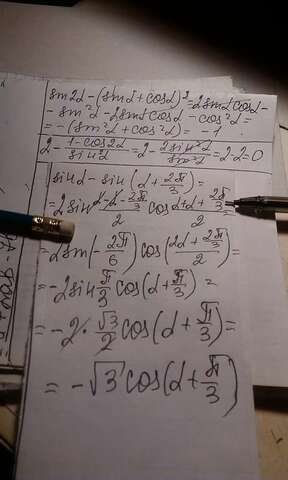 sin2α - (sinα + cosα)² = 2sinα cosα -
- sin²α - 2sinα cosα - cos²α =
= -(sin²α + cos²α) = -1
2 - (1 - cos2α)/(sin²α) = 2 - (2sin²α)/(sin²α) = 2 - 2 = 0
sinα - sin(α + 2π/3) =
= 2 sin (α - α - 2π/3)/2 cos (α + α + 2π/3)/2 =
= 2sin(-2π/6) cos((2α + 2π/3)/2) =
= -2sin π/3 cos(α + π/3) =
= -2 · √3/2 cos(α + π/3) =
= -√3 cos(α + π/3)